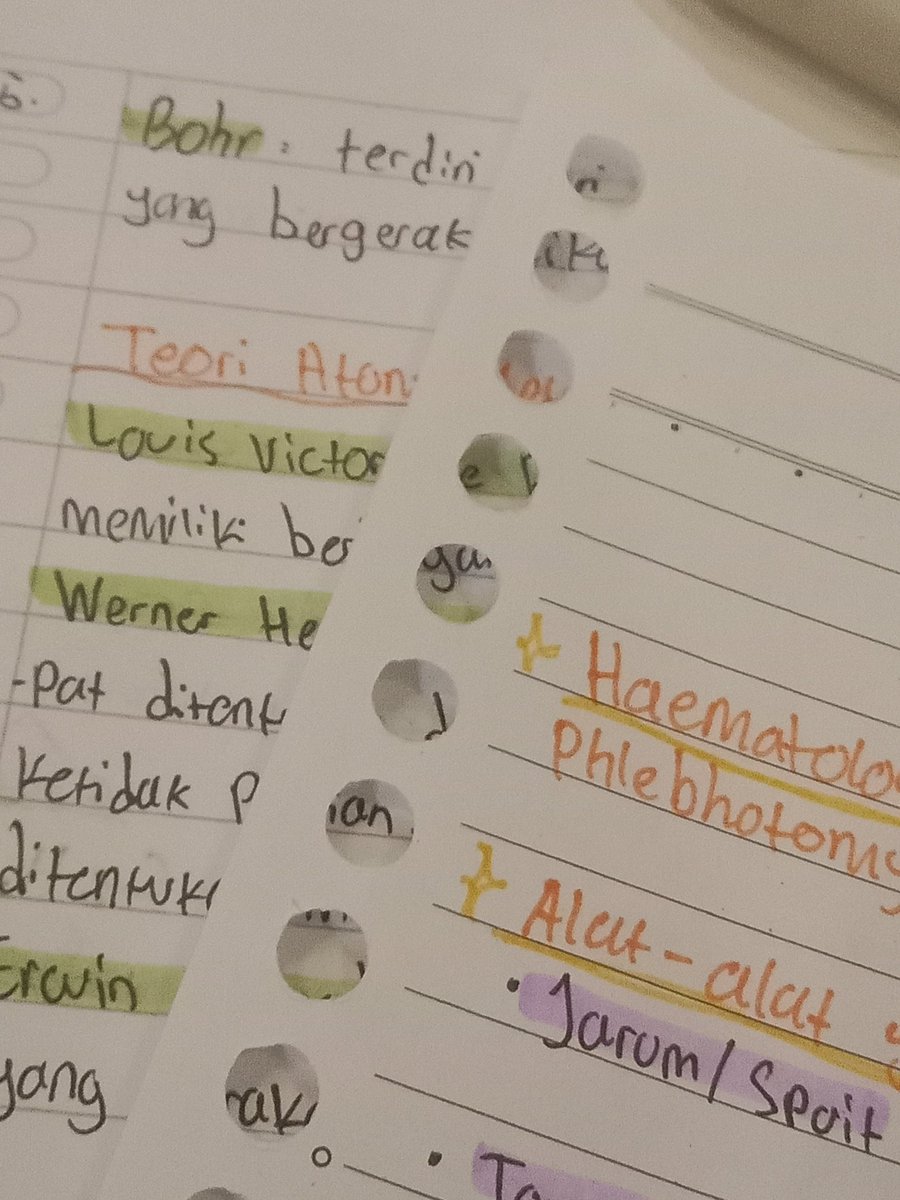 Bohr : terdiri
yang bergerak
Teori Atom
Louis Victor
memiliki
Werner He
-pat ditent
ketidak p
ditentuk
Erwin
yang
gan
ian
ak
Haematolo
Phlebhotomy
Alat-alat
• Jarum/Spait